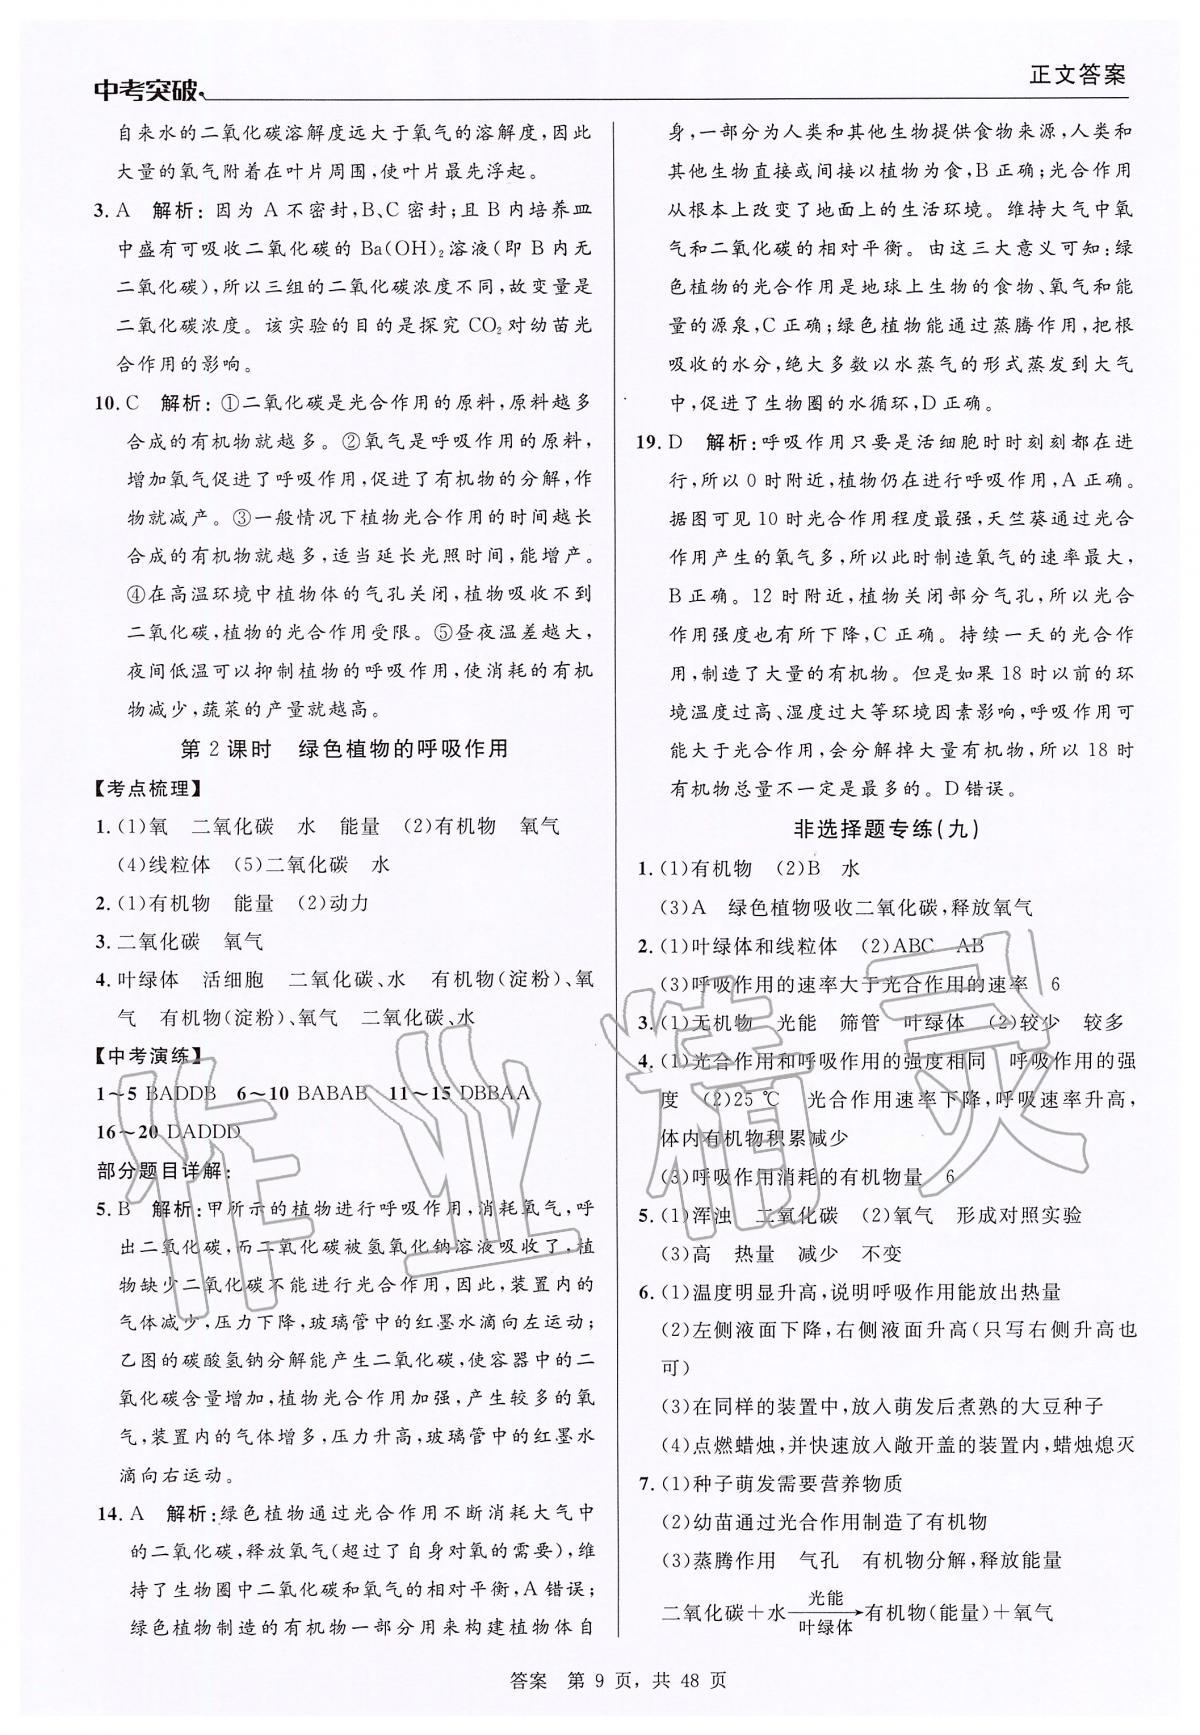 中考突破
正文答案
自来水的二氧化碳溶解度远大于氧气的溶解度,因此
大量的氧气附着在叶片周围,使叶片最先浮起。
3. A 解析:因为 A 不密封,B、C 密封;且 B 内培养皿
中盛有可吸收二氧化碳的 Ba(OH)₂溶液(即 B 内无
二氧化碳),所以三组的二氧化碳浓度不同,故变量是
二氧化碳浓度。该实验的目的是探究 CO₂对幼苗光
合作用的影响。
10. C 解析:①二氧化碳是光合作用的原料,原料越多
合成的有机物就越多。②氧气是呼吸作用的原料,
增加氧气促进了呼吸作用,促进了有机物的分解,作
物就减产。③一般情况下植物光合作用的时间越长
合成的有机物就越多,适当延长光照时间,能增产。
④在高温环境中植物体的气孔关闭,植物吸收不到
二氧化碳,植物的光合作用受限。⑤昼夜温差越大,
夜间低温可以抑制植物的呼吸作用,使消耗的有机
物减少,蔬菜的产量就越高。
第 2 课时 绿色植物的呼吸作用
【考点梳理】
1. (1)氧 二氧化碳 水 能量 (2)有机物 氧气
(4)线粒体 (5)二氧化碳 水
2. (1)有机物 能量 (2)动力
3. 二氧化碳 氧气
4. 叶绿体 活细胞 二氧化碳、水 有机物(淀粉)、氧
气 有机物(淀粉)、氧气 二氧化碳、水
【中考演练】
1～5 BADDB 6～10 BABAB 11～15 DBBAA
16～20 DADDD
部分题目详解:
5. B 解析:甲所示的植物进行呼吸作用,消耗氧气,呼
出二氧化碳,而二氧化碳被氢氧化钠溶液吸收了,植
物缺少二氧化碳不能进行光合作用,因此,装置内的
气体减少,压力下降,玻璃管中的红墨水滴向左运动;
乙图的碳酸氢钠分解能产生二氧化碳,使容器中的二
氧化碳含量增加,植物光合作用加强,产生较多的氧
气,装置内的气体增多,压力升高,玻璃管中的红墨水
滴向右运动。
14. A 解析:绿色植物通过光合作用不断消耗大气中
的二氧化碳,释放氧气(超过了自身对氧的需要),维
持了生物圈中二氧化碳和氧气的相对平衡,A 错误;
绿色植物制造的有机物一部分用来构建植物体自
身,一部分为人类和其他生物提供食物来源,人类和
其他生物直接或间接以植物为食,B 正确;光合作用
从根本上改变了地面上的生活环境。维持大气中氧
气和二氧化碳的相对平衡。由这三大意义可知:绿
色植物的光合作用是地球上生物的食物、氧气和能
量的源泉,C 正确;绿色植物能通过蒸腾作用,把根
吸收的水分,绝大多数以水蒸气的形式蒸发到大气
中,促进了生物圈的水循环,D 正确。
19. D 解析:呼吸作用只要是活细胞时时刻刻都在进
行,所以 0 时附近,植物仍在进行呼吸作用,A 正确。
据图可见 10 时光合作用程度最强,天竺葵通过光合
作用产生的氧气多,所以此时制造氧气的速率最大,
B 正确。12 时附近,植物关闭部分气孔,所以光合
作用强度也有所下降,C 正确。持续一天的光合作
用,制造了大量的有机物。但是如果 18 时以前的环
境温度过高、湿度过大等环境因素影响,呼吸作用可
能大于光合作用,会分解掉大量有机物,所以 18 时
有机物总量不一定是最多的。D 错误。
非选择题专练(九)
1. (1)有机物 (2)B 水
(3)A 绿色植物吸收二氧化碳,释放氧气
2. (1)叶绿体和线粒体 (2)ABC AB
(3)呼吸作用的速率大于光合作用的速率 6
3. (1)无机物 光能 筛管 叶绿体 (2)较少 较多
4. (1)光合作用和呼吸作用的强度相同 呼吸作用的强
度 (2)25 ℃ 光合作用速率下降,呼吸速率升高,
体内有机物积累减少
(3)呼吸作用消耗的有机物量 6
5. (1)浑浊 二氧化碳 (2)氧气 形成对照实验
(3)高 热量 减少 不变
6. (1)温度明显升高,说明呼吸作用能放出热量
(2)左侧液面下降,右侧液面升高(只写右侧升高也
可)
(3)在同样的装置中,放入萌发后煮熟的大豆种子
(4)点燃蜡烛,并快速放入敞开盖的装置内,蜡烛熄灭
7. (1)种子萌发需要营养物质
(2)幼苗通过光合作用制造了有机物
(3)蒸腾作用 气孔 有机物分解,释放能量
光能
二氧化碳＋水→有机物(能量)＋氧气
叶绿体
答案 第 9 页,共 48 页
作业精灵